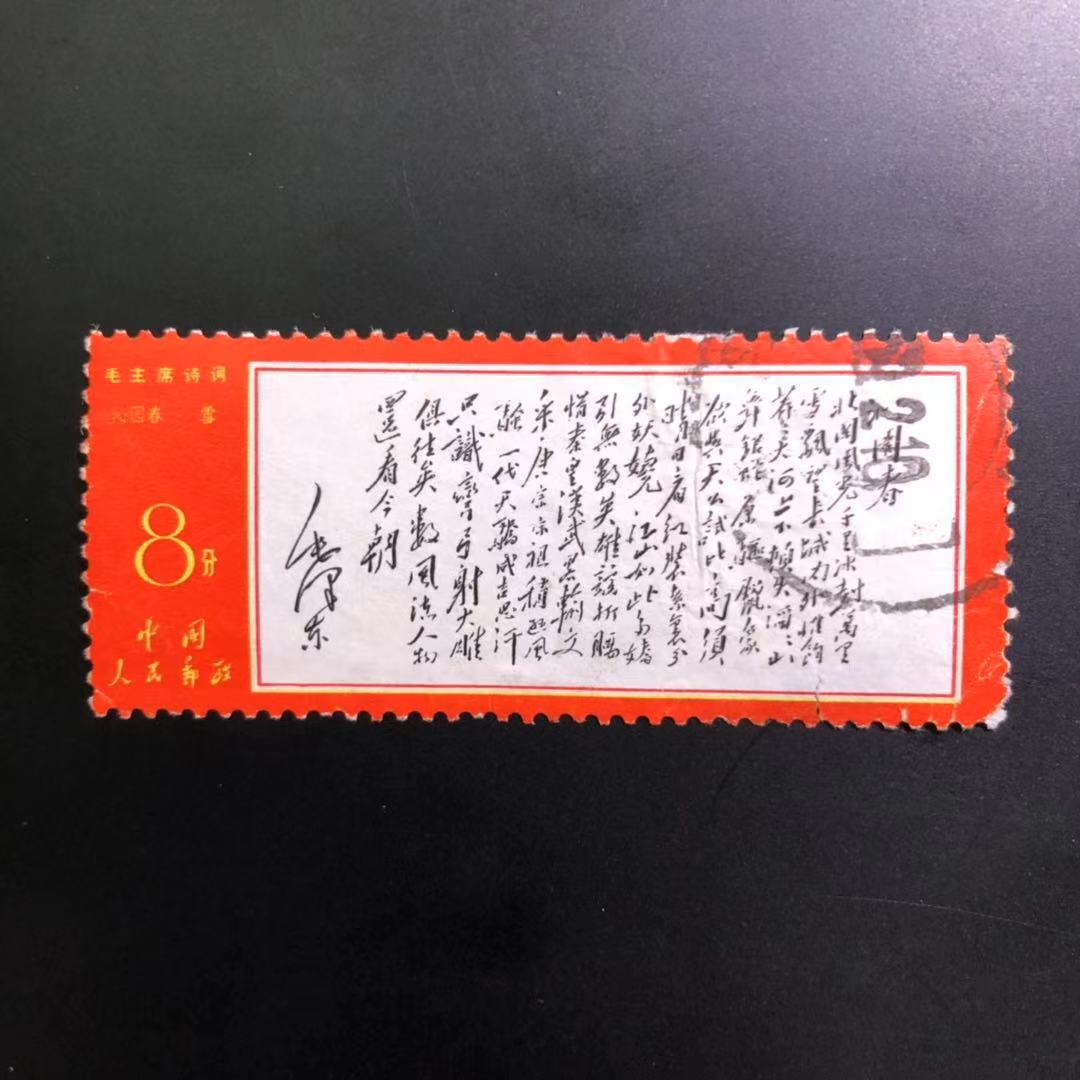 毛主席诗词
沁园春 雪
8分
中国
人民邮政
沁園春
北國風光千里冰封萬里
雪飄望長城內外惟餘
莽莽大河上下頓失滔滔山
舞銀蛇原驅臘象
欲與天公試比高須
晴日看紅裝素裹分
外妖嬈江山如此多嬌
引無數英雄競折腰
惜秦皇漢武略輸文
采唐宗宋祖稍遜風
騷一代天驕成吉思汗
只識彎弓射大雕
俱往矣數風流人物
還看今朝
毛澤東